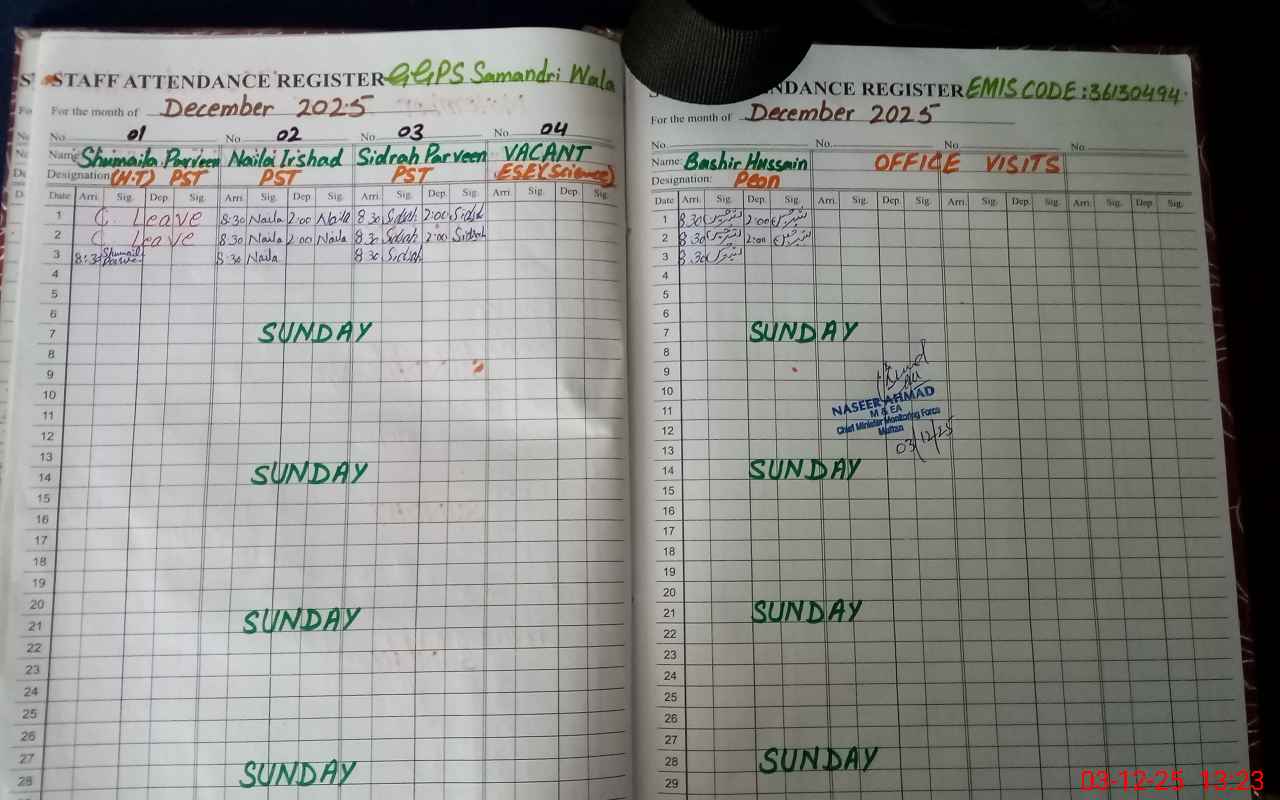 STAFF ATTENDANCE REGISTER GGPS Samandri Wala
For the month of December 2025
No. 01 No. 02 No. 03 No. 04
Name: Shumaila Parveen Naila Irshad Sidrah Parveen VACANT
Designation: (H.T) PST PST PST ESE(Science)
Date Arri. Sig. Dep. Sig. Arri. Sig. Dep. Sig. Arri. Sig. Dep. Sig. Arri. Sig. Dep. Sig.
1 C. Leave 8:30 Naila 2:00 Naila 8:30 Sidrah 2:00 Sidrah
2 C Leave 8:30 Naila 2:00 Naila 8:30 Sidrah 2:00 Sidrah
3 8:30 Shumaila Parveen 8:30 Naila 8:30 Sidrah
4
5
6
7 SUNDAY
8
9
10
11
12
13
14 SUNDAY
15
16
17
18
19
20
21 SUNDAY
22
23
24
25
26
27
28 SUNDAY
NDANCE REGISTER EMIS CODE:36130494
For the month of December 2025
No. No. No. No.
Name: Bashir Hussain OFFICE VISITS
Designation: Peon
Date Arri. Sig. Dep. Sig. Arri. Sig. Dep. Sig. Arri. Sig. Dep. Sig. Arri. Sig. Dep. Sig.
1 8:30 2:00
2 8:30 2:00
3 8:30
4
5
6
7 SUNDAY
8
9
10
11
12
13
14 SUNDAY
15
16
17
18
19
20
21 SUNDAY
22
23
24
25
26
27
28 SUNDAY
29
NASEER AHMAD
M & EA
Chief Minister Monitoring Force
Multan
03/12/25
03-12-25 13:23